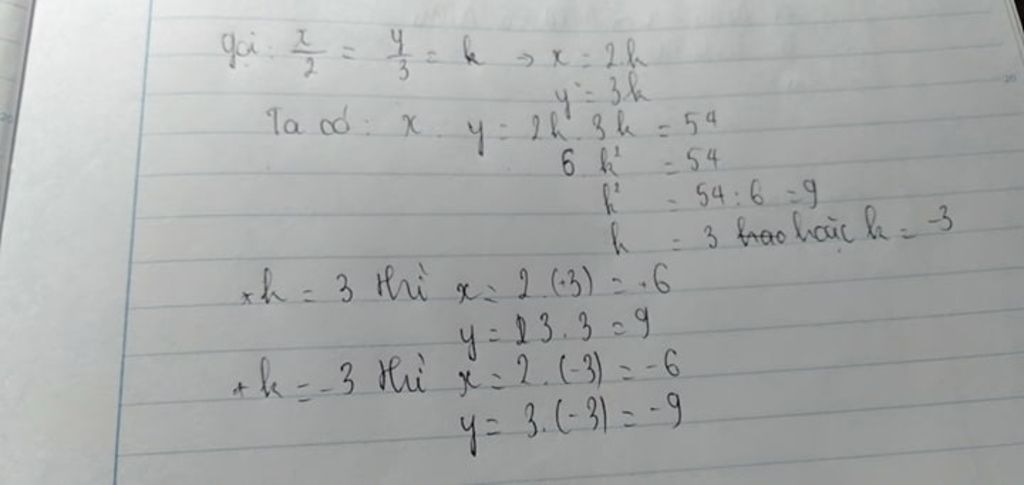 gọi: x/2 = y/3 = k → x = 2k
y = 3k
Ta có: x . y = 2k . 3k = 54
6 k² = 54
k² = 54 : 6 = 9
k = 3 hoặc k = -3
*k = 3 thì x = 2.(+3) = +6
y = 3 . 3 = 9
+k = -3 thì x = 2.(-3) = -6
y = 3.(-3) = -9